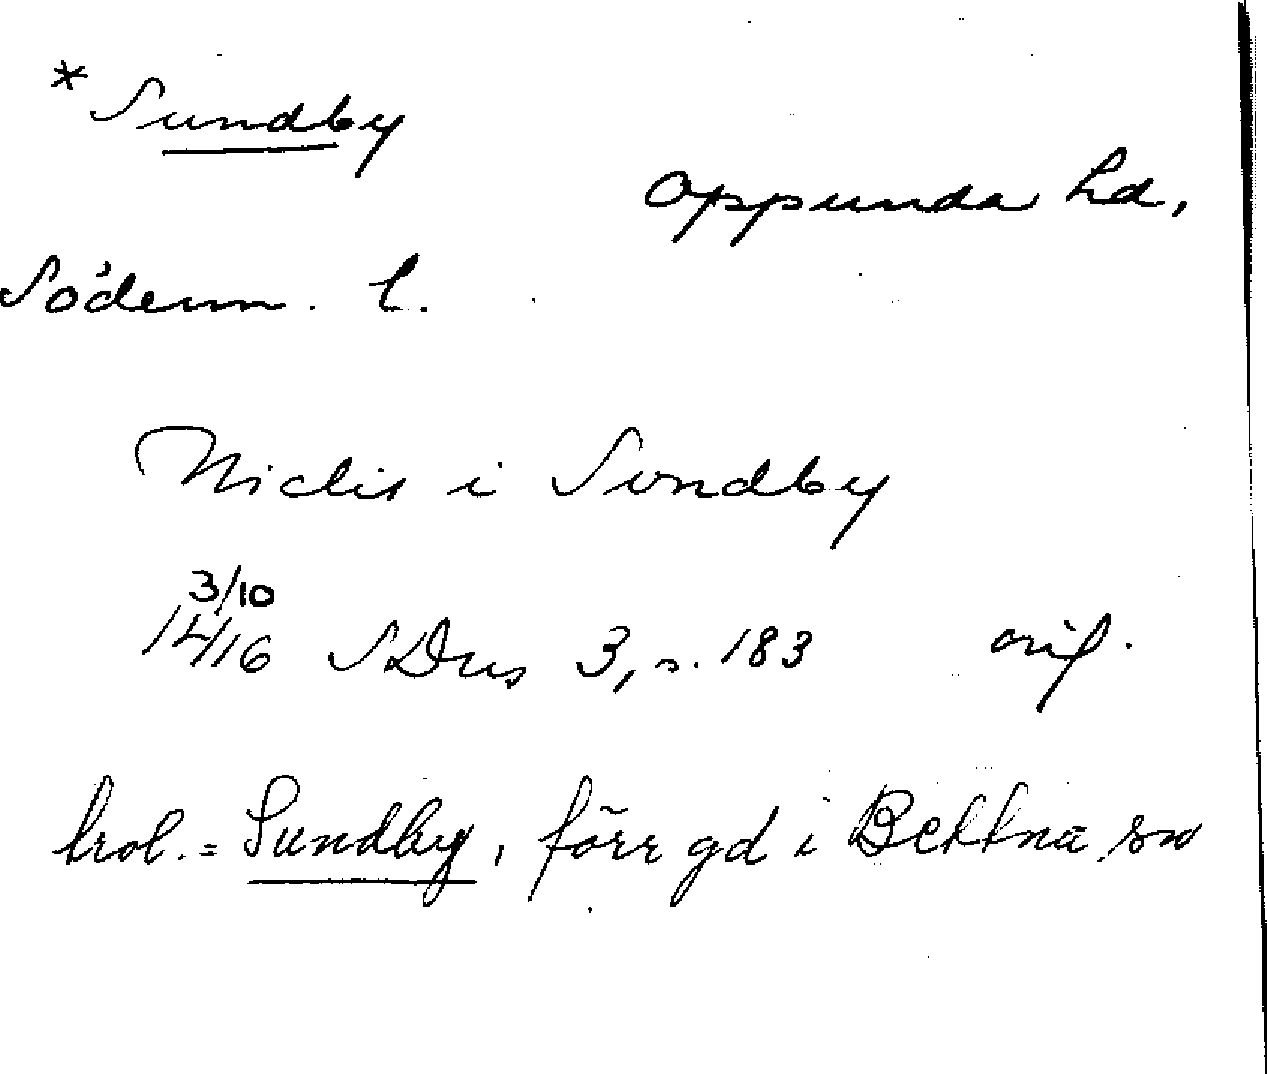 * Sundby
Oppunda hd,
Söderm. l.
Niclis i Sundby
3/10
1416 SDns 3, s. 183 orig.
trol. = Sundby, förr gd i Bettna sn